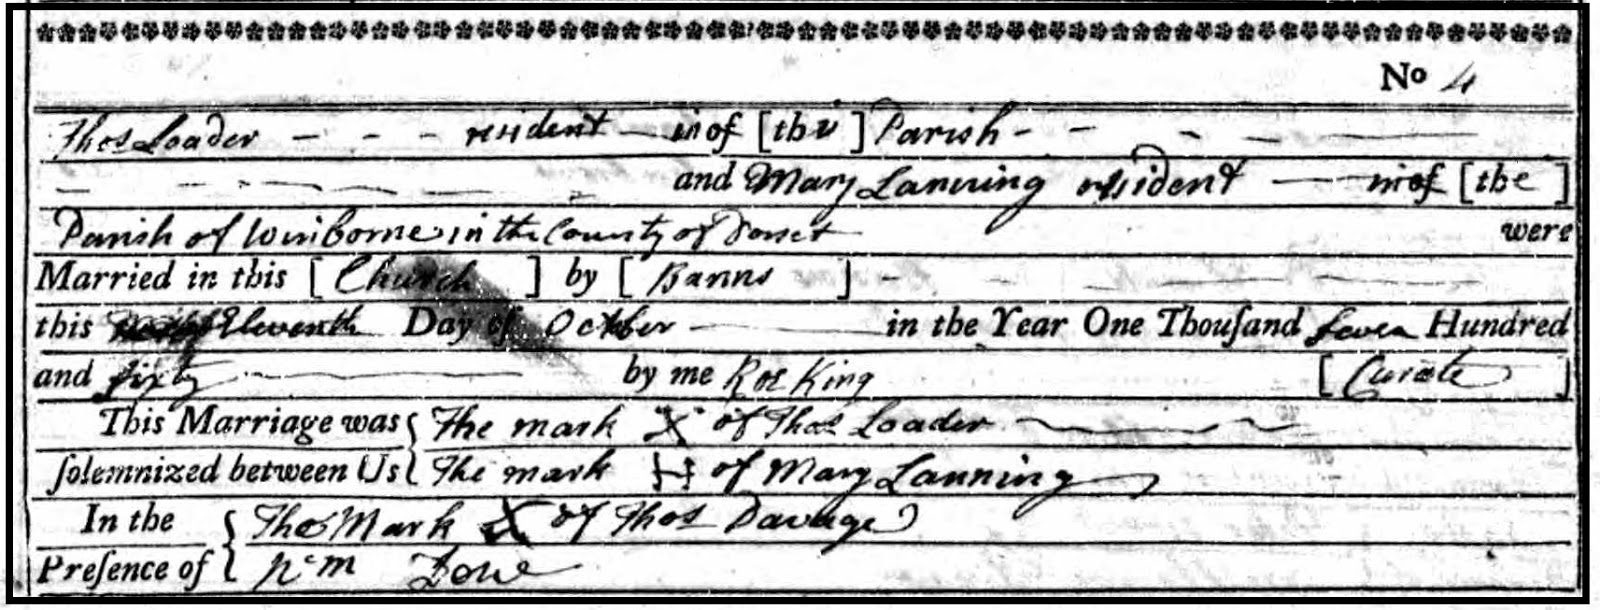 No 4
Thos Loader - - - resident — in of [this] Parish - - - —
and Mary Lanning resident — in of [the]
Parish of Winborne in the County of Dorset were
Married in this [Church] by [Banns] -
this Eleventh Day of October — in the Year One Thouſand Seven Hundred
and sixty — by me King [Curate]
This Marriage was { The mark X of Thos Loader
ſolemnized between Us { The mark H of Mary Lanning
In the { The Mark X of Thos Davage
Preſence of { Dowe